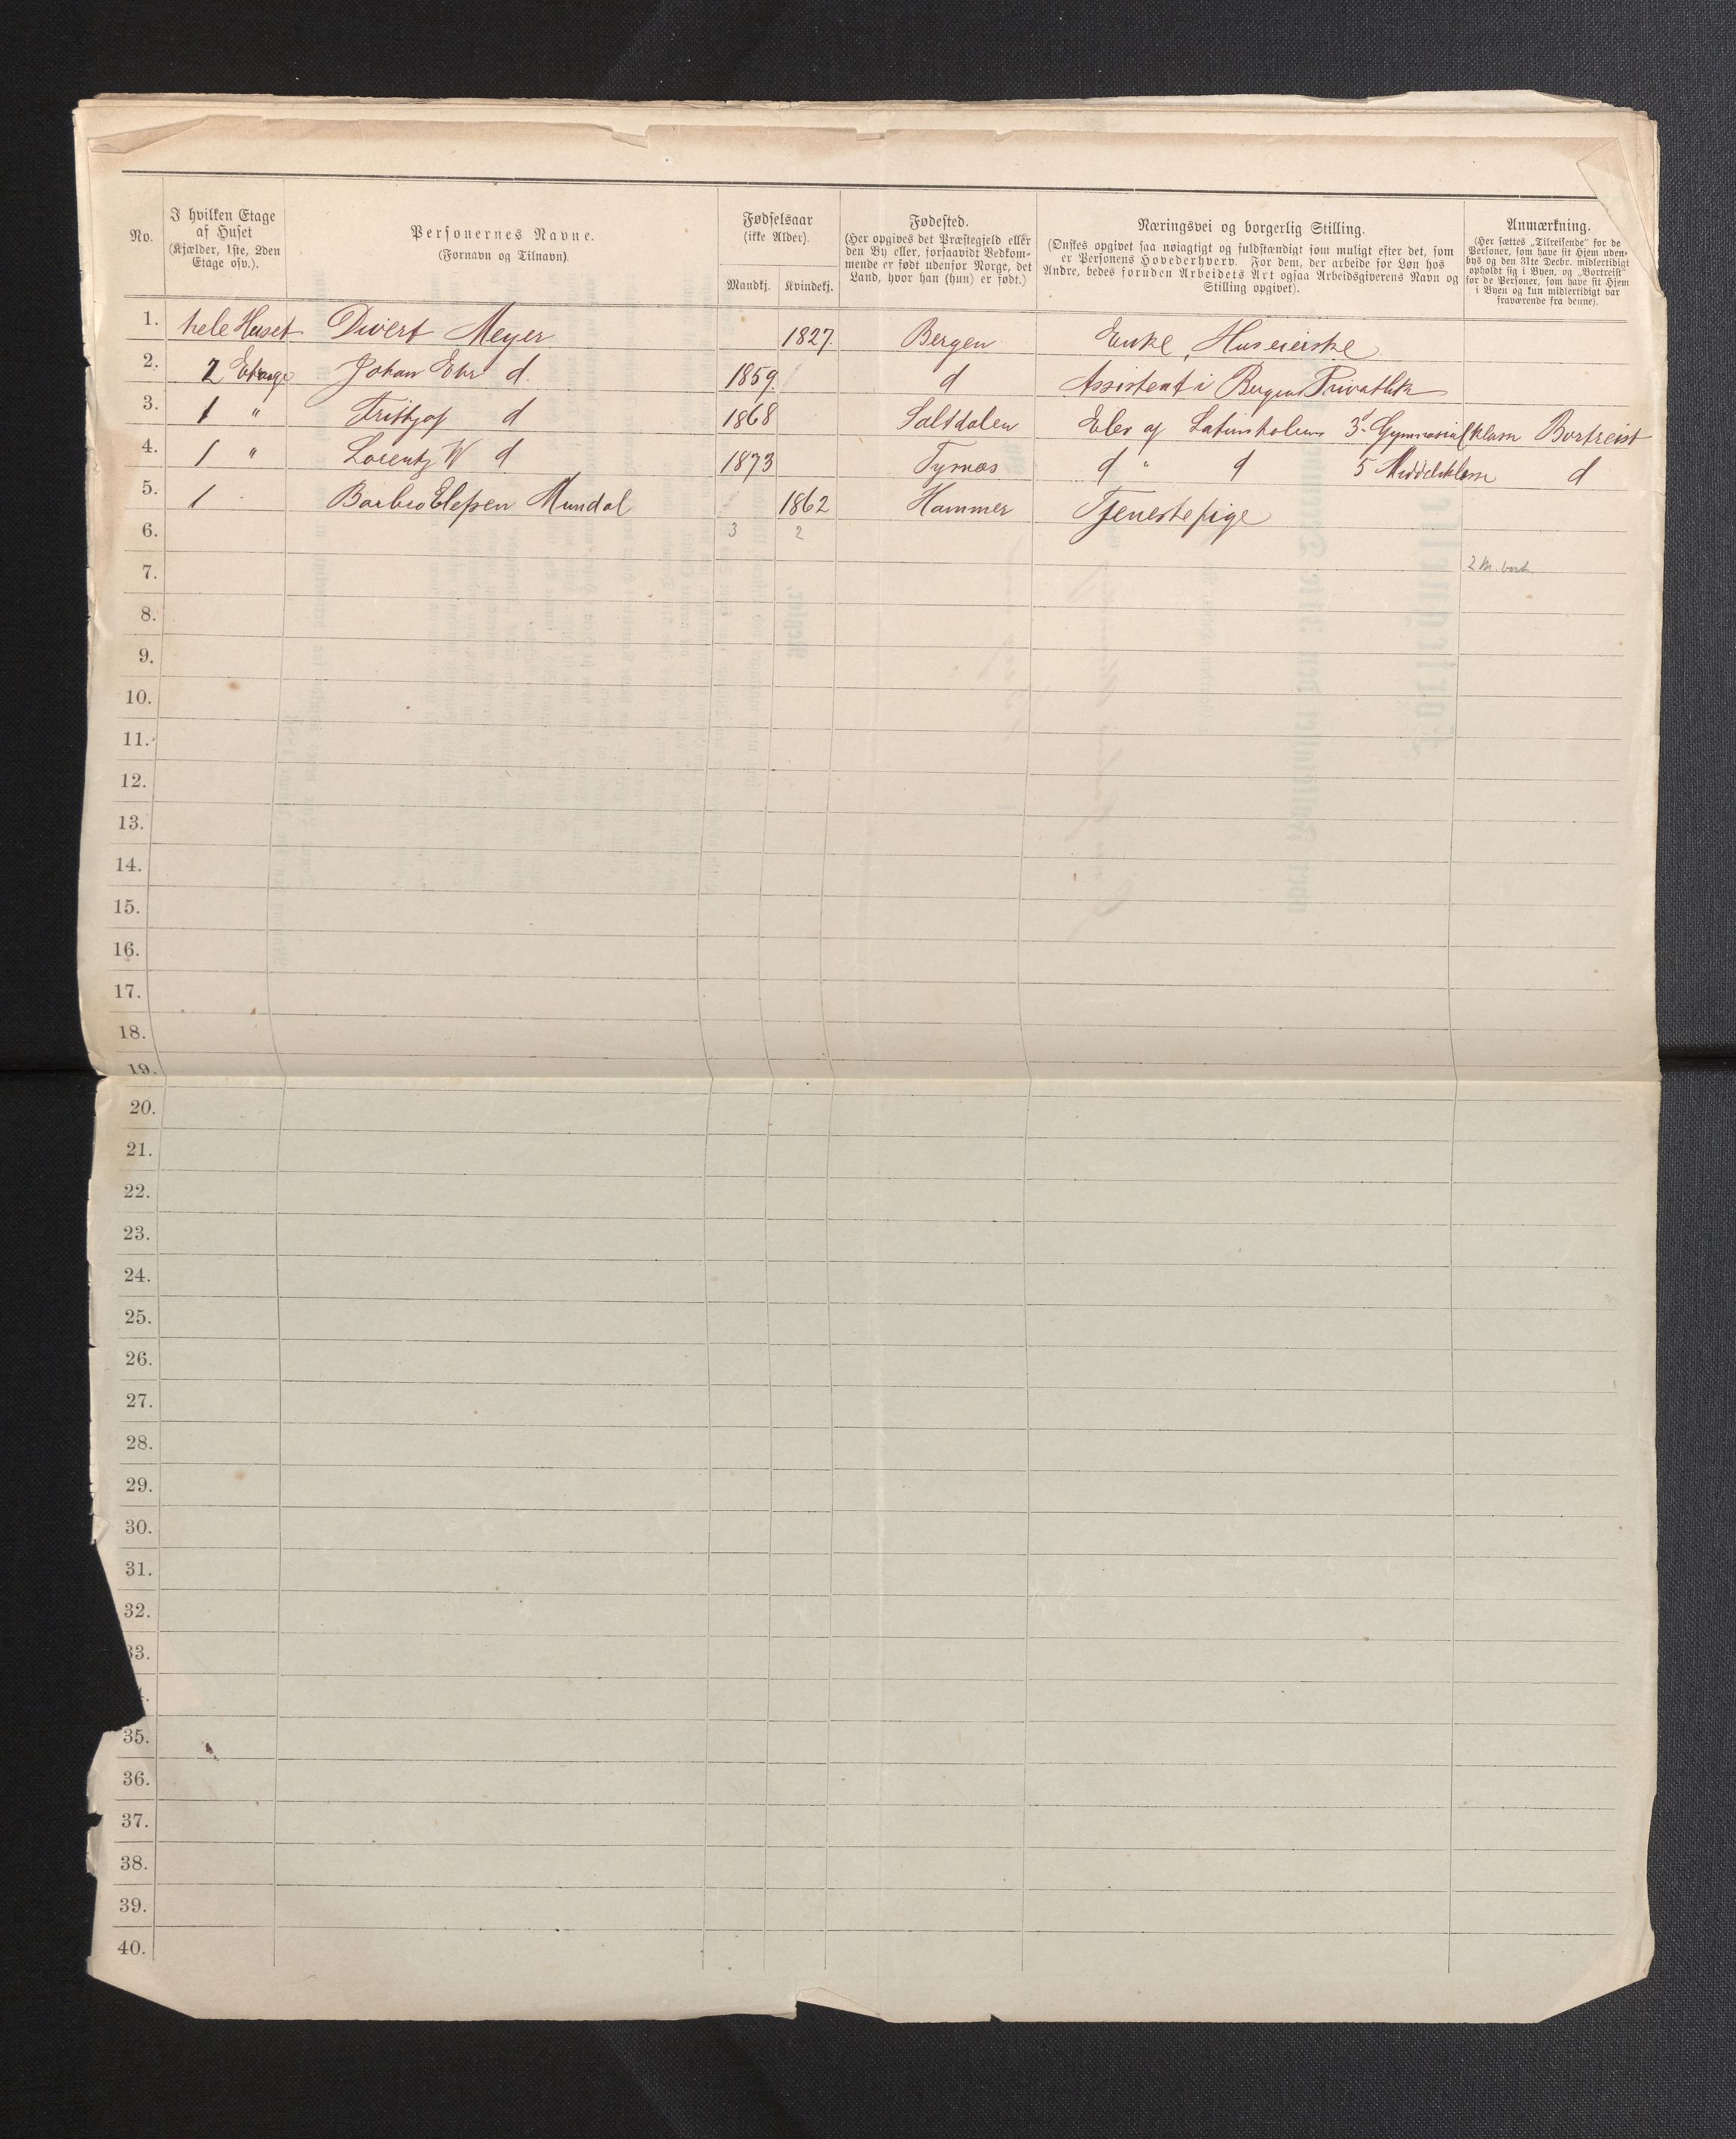 No.
I hvilken Etage
af Huset
(Kjælder, 1ste, 2den
Etage osv.).
Personernes Navne.
(Fornavn og Tilnavn)
Fødselsaar
(ikke Alder).
Mandkj. Kvindekj.
Fødested.
(Her opgives det Præstegjeld eller
den By eller, forsaavidt Vedkom-
mende er født udenfor Norge, det
Land, hvor han (hun) er født.)
Næringsvei og borgerlig Stilling.
(Ønskes opgivet saa nøiagtigt og fuldstændigt som muligt efter det, som
er Personens Hovederhverv. For dem, der arbeide for Løn hos
Andre, bedes foruden Arbeidets Art ogsaa Arbeidsgiverens Navn og
Stilling opgivet).
Anmærkning.
(Her sættes „Tilreisende" for de
Personer, som have sit Hjem uden-
bys og den 31te Decbr. midlertidigt
opholdt sig i Byen, og „Bortreist"
for de Personer, som have sit Hjem
i Byen og kun midlertidigt var
fraværende fra denne).
1. hele Huset Divert Meyer 1827 Bergen Enke, Huseierske
2. 2 Etage Johan Ehr d. 1859 d Assistent i Bergens Privatbk
3. 1 " Frithjof d 1868 Saltdalen Elev af Latinskolens 3d Gymnasialklasse Bortreist
4. 1 " Lorentz W d 1873 Tysnæs d " d 5 Middelklasse d
5. 1 Barbro Mundal 1862 Hammer Tjenestepige
6. 3 2
7. 2 M. bort.
8.
9.
10.
11.
12.
13.
14.
15.
16.
17.
18.
19.
20.
21.
22.
23.
24.
25.
26.
27.
28.
29.
30.
31.
32.
33.
35.
36.
37.
38.
39.
40.